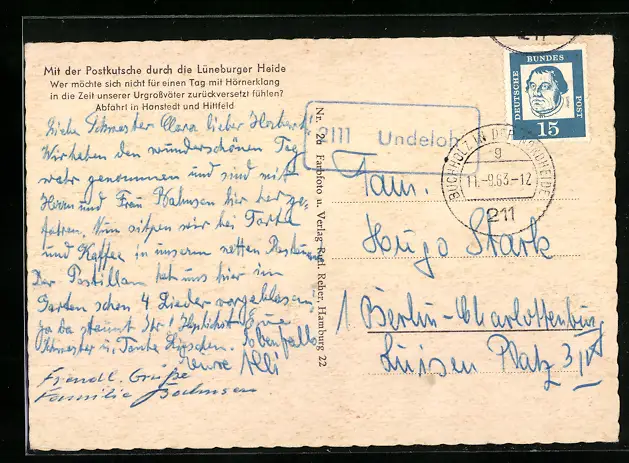 Mit der Postkutsche durch die Lüneburger Heide
Wer möchte sich nicht für einen Tag mit Hörnerklang
in die Zeit unserer Urgroßväter zurückversetzt fühlen?
Abfahrt in Hanstedt und Hittfeld
Liebe Schwester Clara lieber Herbert
Wir haben den wunderschönen Tag
wahr genommen und sind mit
Herrn und Frau Bahnsen hier her ge-
fahren. Nun sitzen wir bei Torte
und Kaffee in unserem netten
Der Postillon hat uns hier im
Garten schon 4 Lieder vorgeblasen
ja da staunt Ihr! Herzlichst Eure
Schwester u. Tante
Frendl. Grüße
Familie Bahnsen
Nr. 26 Farbfoto u. Verlag Rud. Reher, Hamburg 22
2111 Undeloh
211
DEUTSCHE BUNDESPOST
15
BUCHHOLZ IN DER NORDHEIDE
g
11.-9.63.-12
211
Fam.
Hugo Stark
1 Berlin-Charlottenburg
Luisen Platz 3